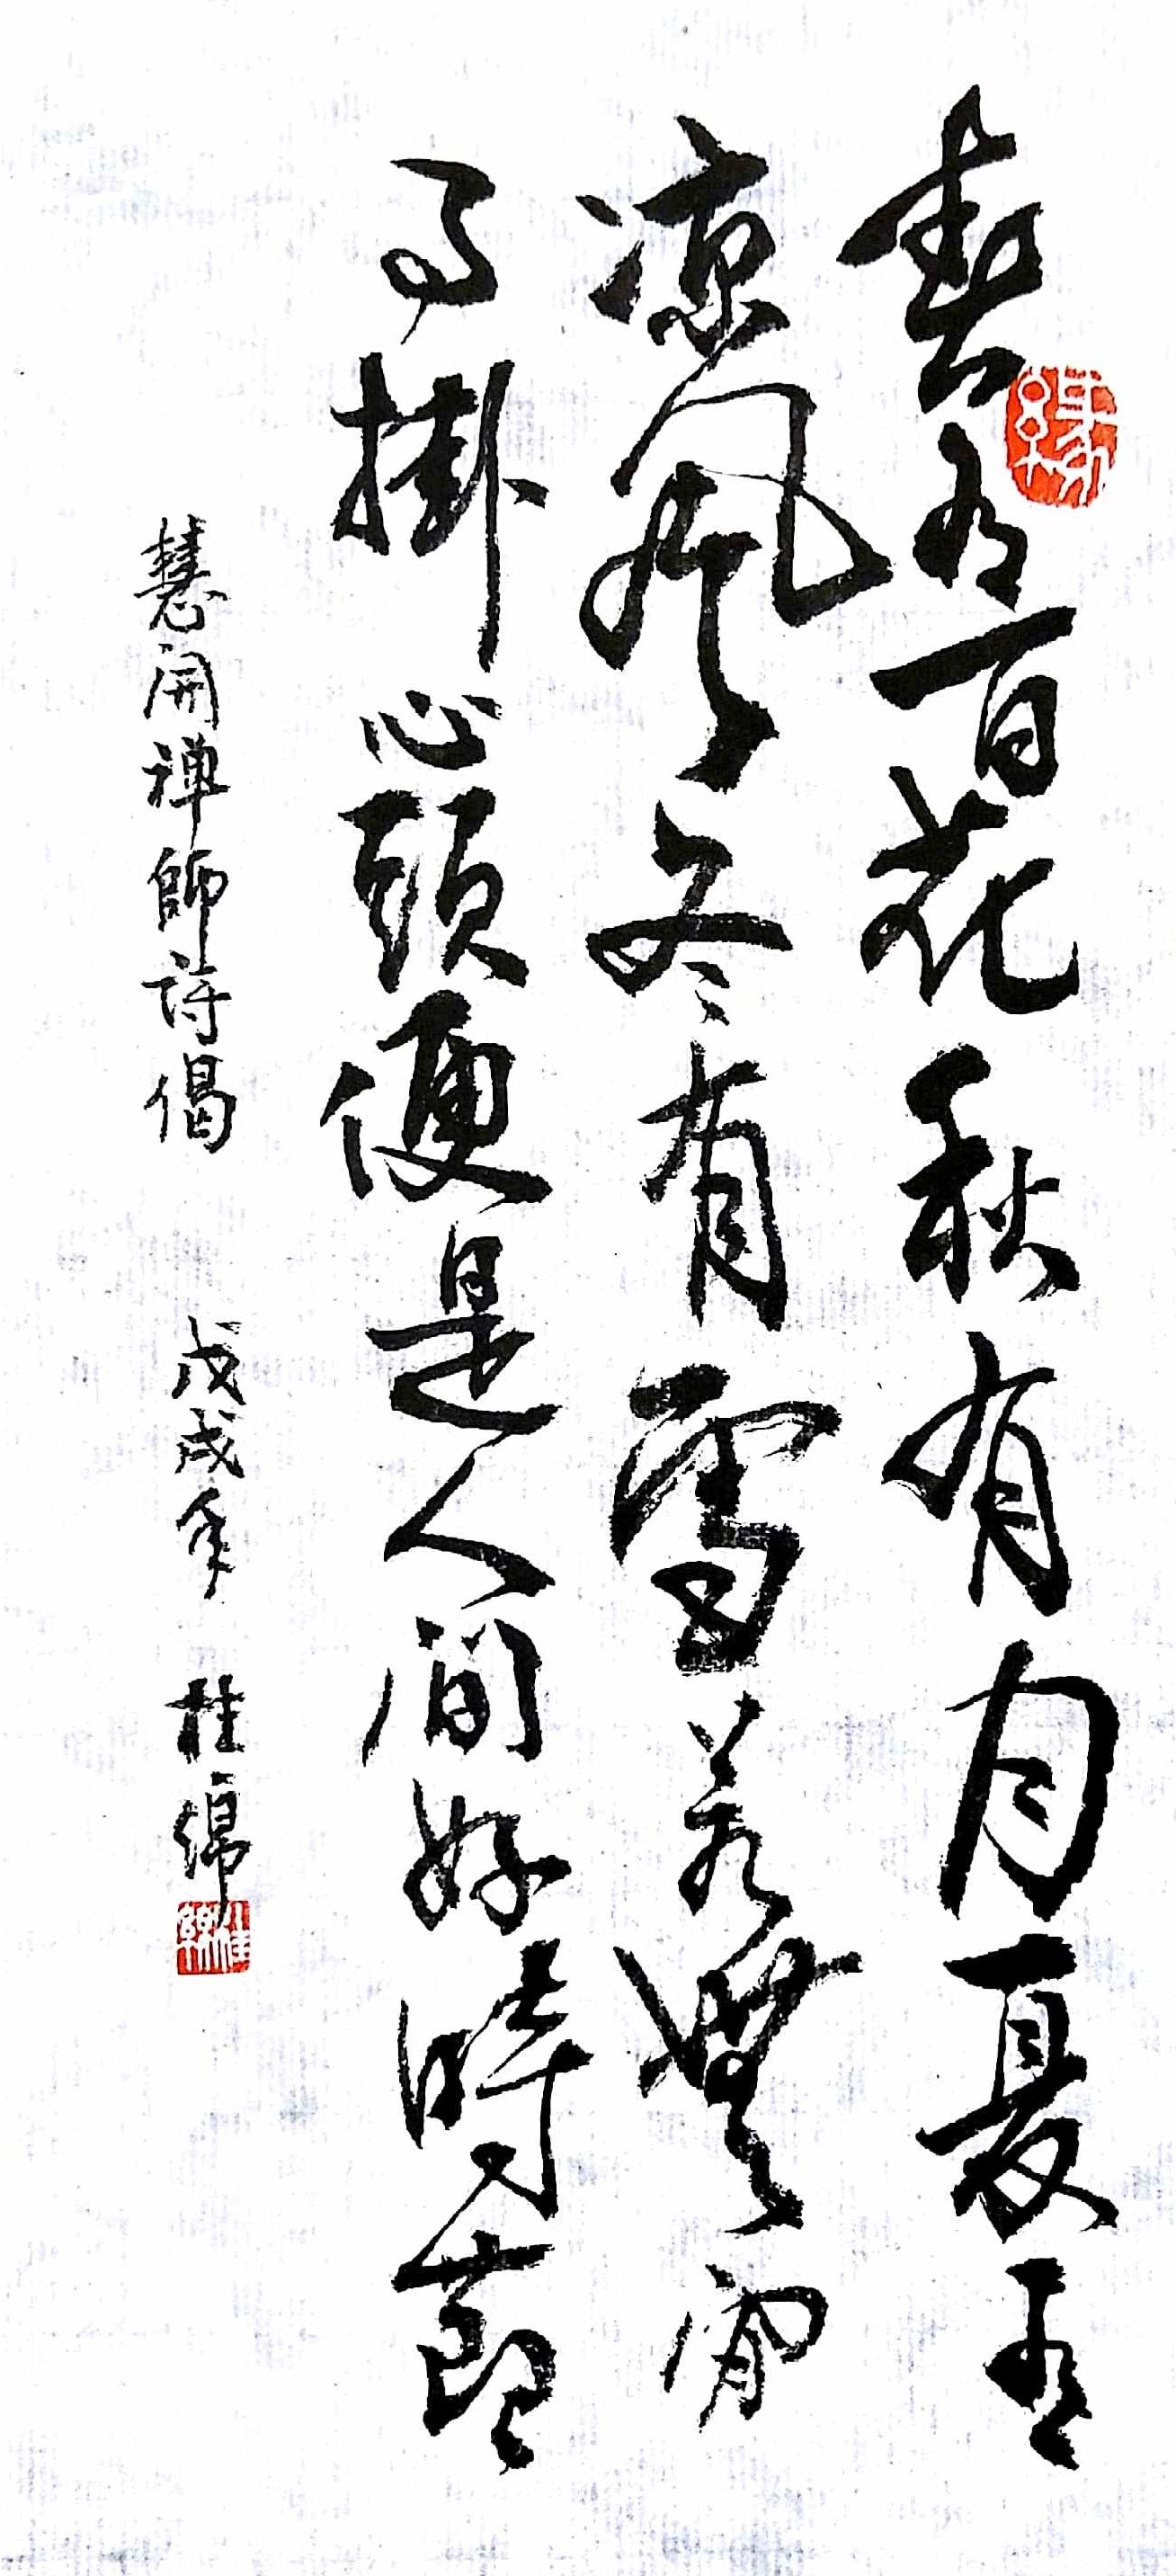 春有百花秋有月夏有
涼風冬有雪若無閒
事掛心頭便是人間好時節
慧開禪師詩偈 戊戌年 桂綿
緣